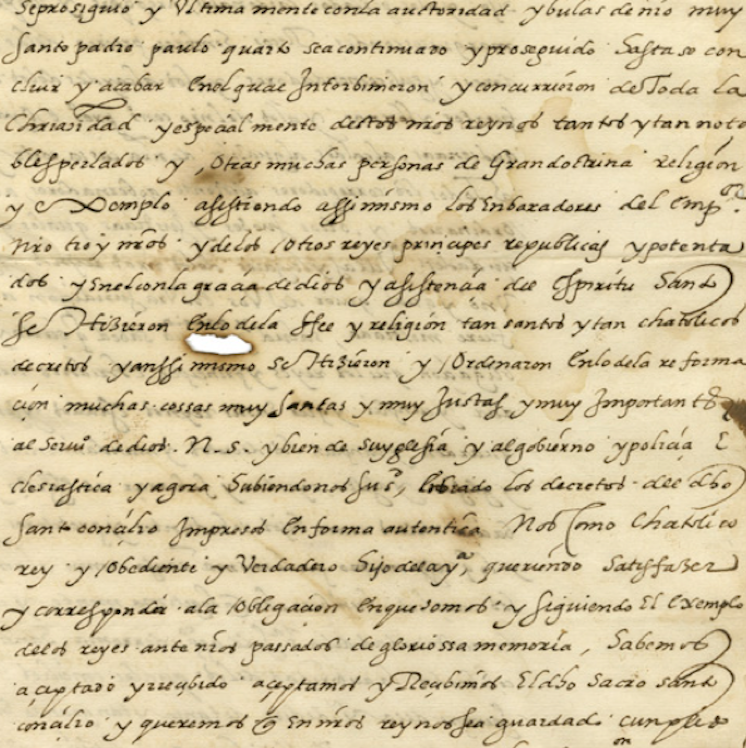 se prosiguio y Ultima mente con la auctoridad y bulas de nro muy
santo padre paulo quarto se a continuado y proseguido hasta se con
cluir y acabar En el qual Interbinieron y concurrieron de Toda la
Christiandad y espeçial mente destos nros reynos tantos y tan nota
bles perlados y otras muchas personas de Gran doctrina religion
y Exemplo asistiendo assi mismo los Enbaxadores del Emp.or
nro tio y nros y de los otros reyes prinçipes republicas y potenta
dos y En el con la graçia de dios y asistençia del espiritu Santo
se Hizieron En lo de la ffee y religion tan santos y tan chatolicos
decretos y anssi mismo se Hizieron y Ordenaron En lo de la reforma
çion muchas cossas muy santas y muy Justas y muy Importantes
al serui.o de dios N. S. y bien de su yglesia y al gobierno y poliçia E
clesiastica y agora Subiendonos su S.d Enbiado los decretos del dho
santo conçilio Impresos En forma autentica Nos Como Chatolico
rey y Obediente y Verdadero Hijo de la y.a queriendo Satisfazer
y corresponder a la Obligaçion En que somos y siguiendo El Exemplo
de los reyes ante nros passados de gloriossa memoria, Habemos
açeptado y reçibido açeptamos y Reçibimos El dho Sacro santo
conçilio y queremos q En nros reynos sea guardado cunplido